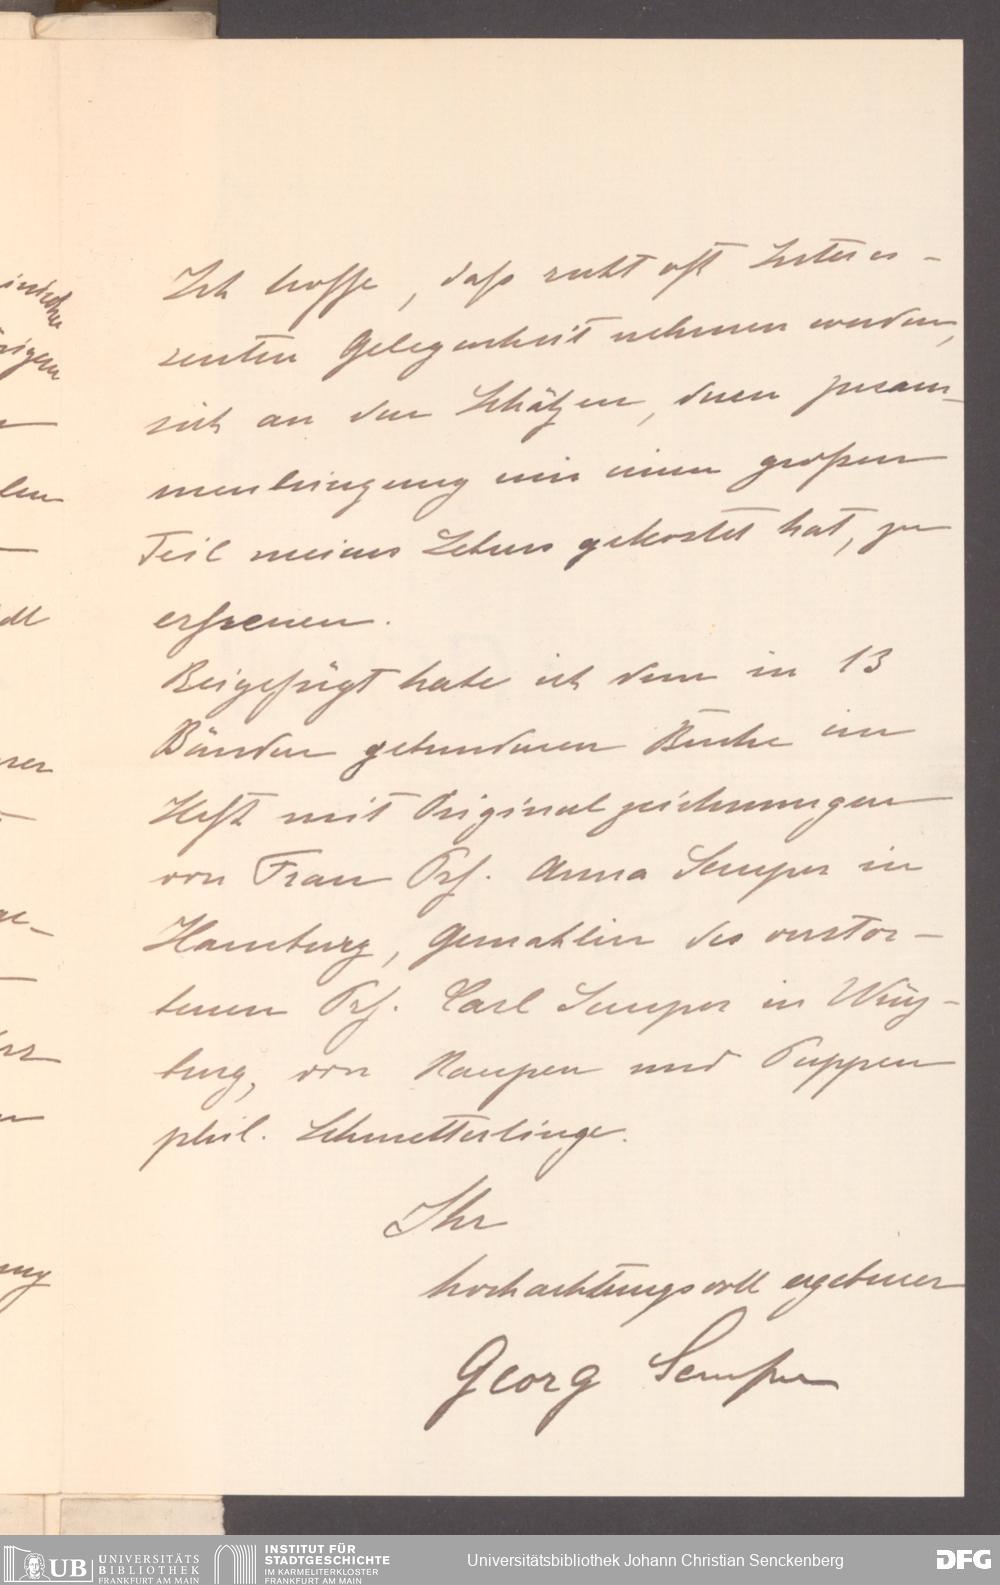 Ich hoffe, daß recht oft Interes-
senten Gelegenheit nehmen werden,
sich an den Schätzen, deren Zusam-
menbringung mir einen großen
Teil meines Lebens gekostet hat, zu
erfreuen.
Beigefügt habe ich dem in 13
Bänden gebundenen Buche ein
Heft mit Originalzeichnungen
von Frau Prf. Anna Semper in
Hamburg, Gemahlin des verstor-
benen Prf. Carl Semper in Würz-
burg, von Raupen und Puppen
phil. Schmetterlinge.
Ihr
hochachtungsvoll ergebener
Georg Semper
UB UNIVERSITÄTS
BIBLIOTHEK
FRANKFURT AM MAIN
INSTITUT FÜR
STADTGESCHICHTE
IM KARMELITERKLOSTER
FRANKFURT AM MAIN
Universitätsbibliothek Johann Christian Senckenberg
DFG